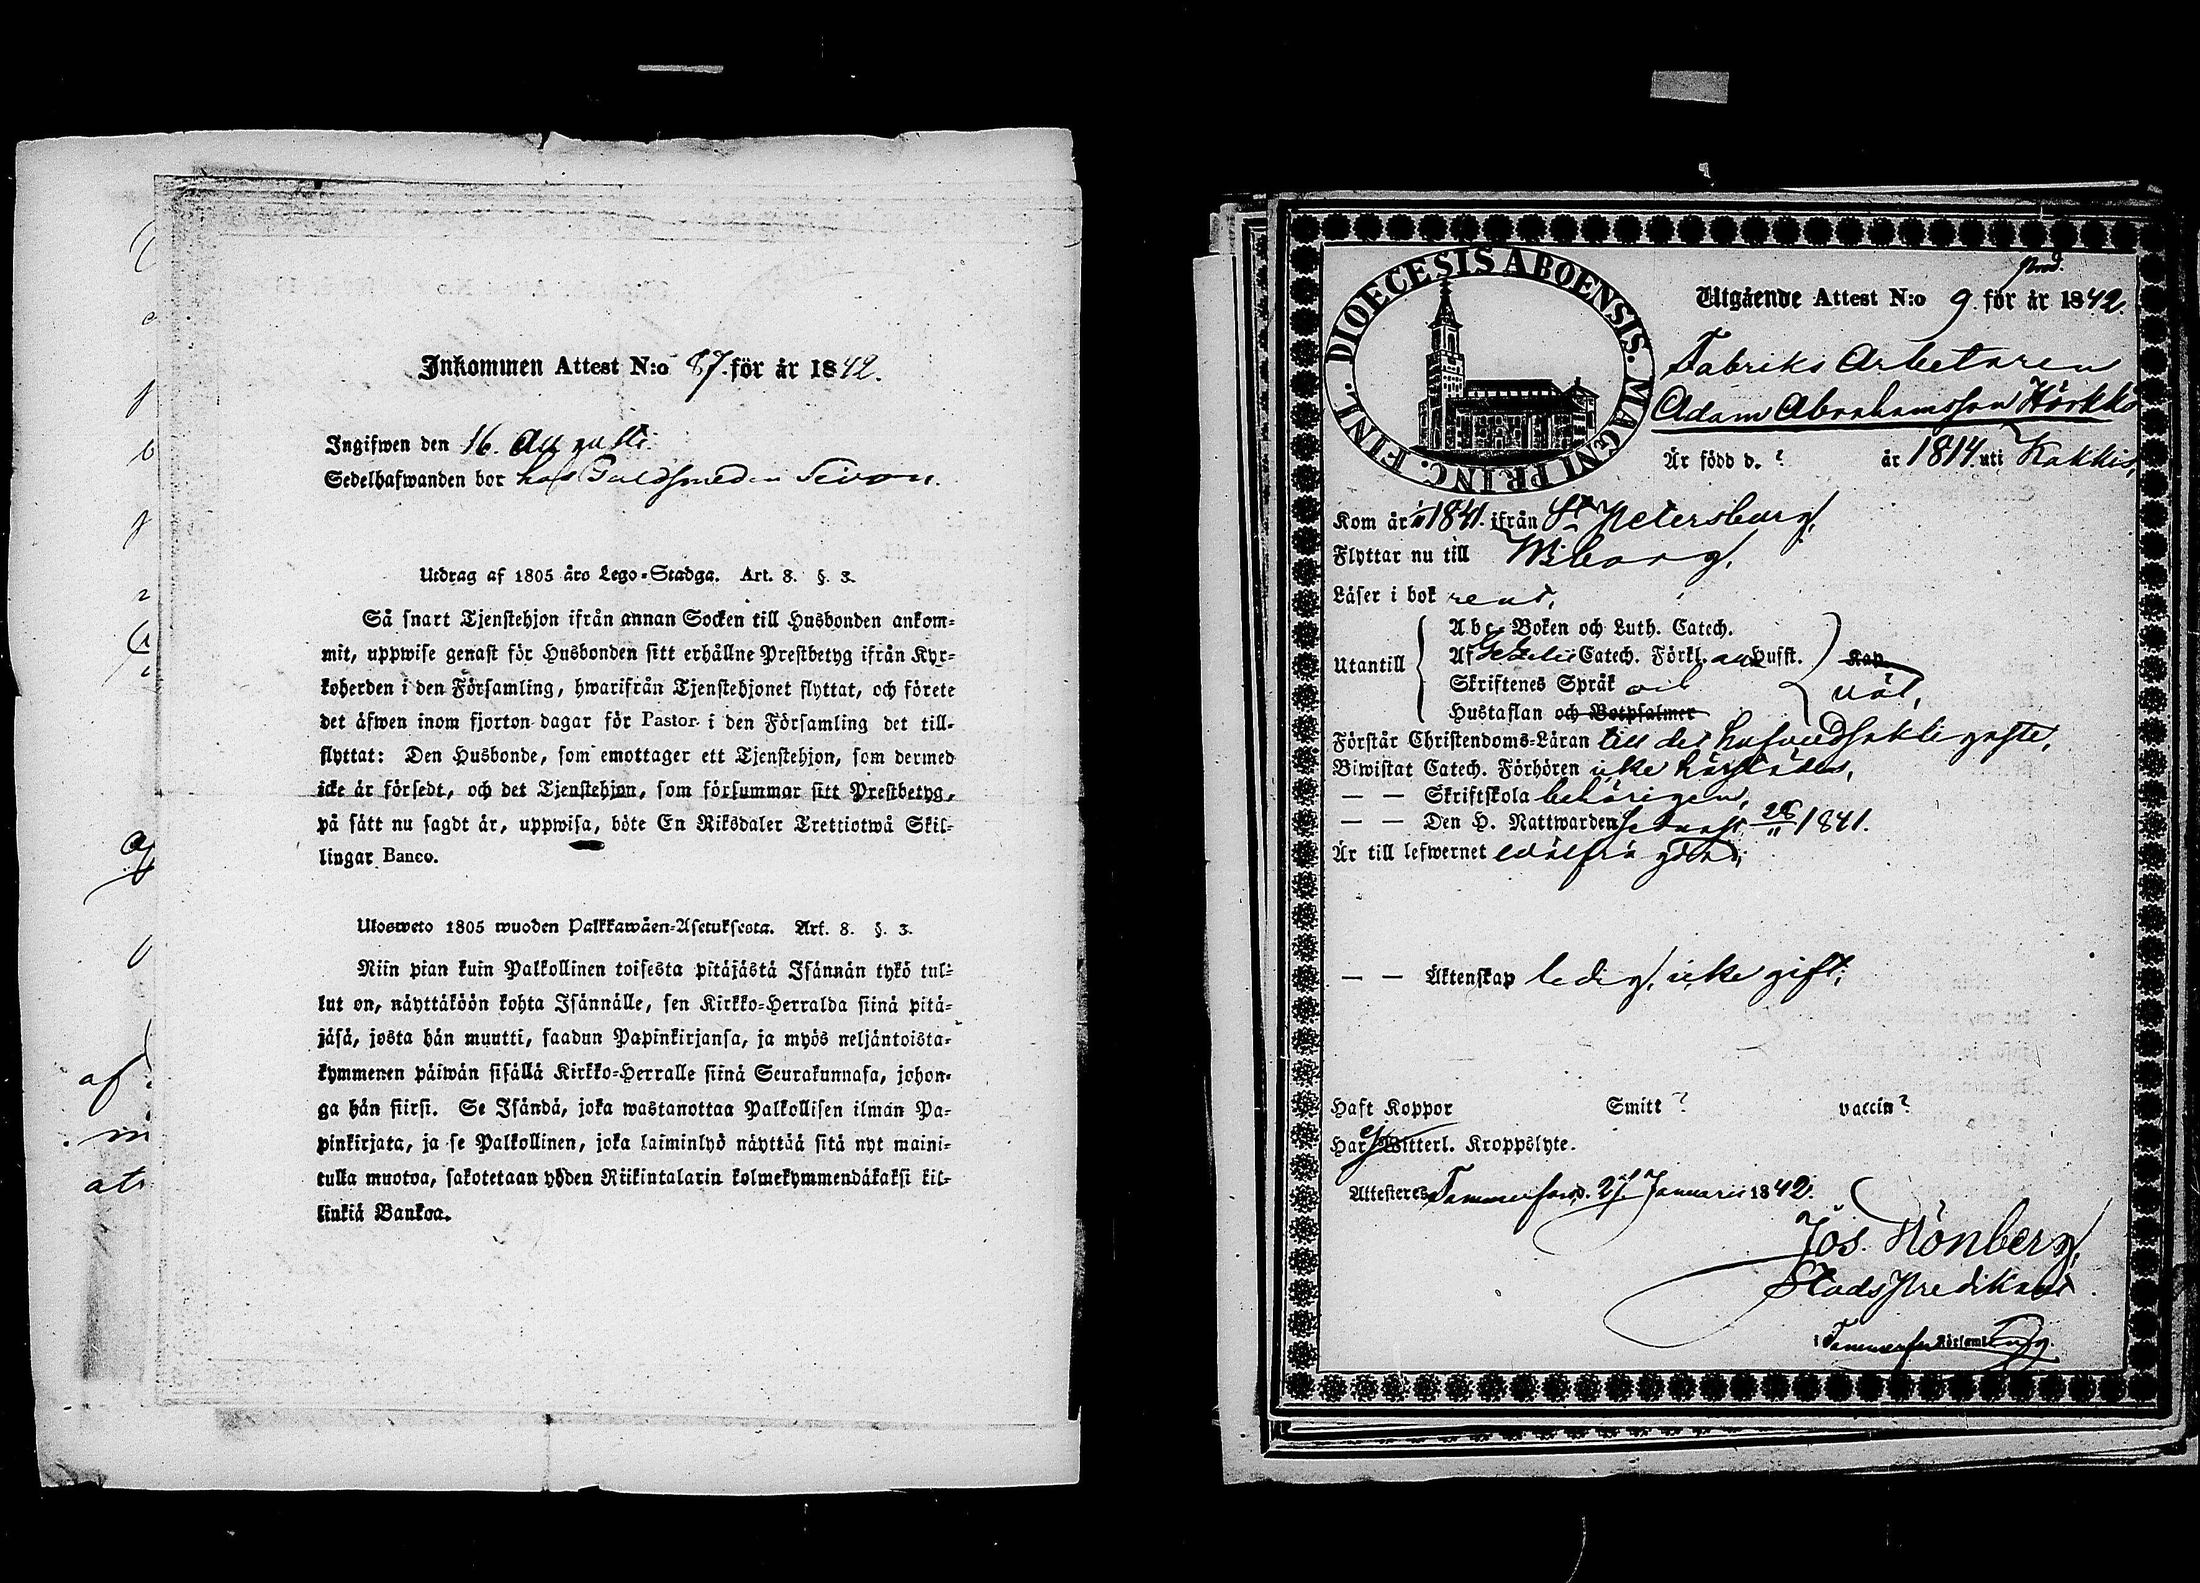 Inkommen Attest N:o 87. för år 1842.
Ingifwen den 16. Augusti.
Sedelhafwanden bor hos Guldsmeden Sivon.
Utdrag af 1805 års Lego-Stadga. Art. 8. §. 3.
Så snart Tjenstehjon ifrån annan Socken till Husbonden ankom-
mit, uppwise genast för Husbonden sitt erhållne Prestbetyg ifrån Kyr-
koherden i den Församling, hwarifrån Tjenstehjonet flyttat, och förete
det äfwen inom fjorton dagar för Pastor i den Församling det till-
flyttat: Den Husbonde, som emottager ett Tjenstehjon, som dermed
icke är försedt, och det Tjenstehjon, som försummar sitt Prestbetyg,
på sätt nu sagdt är, uppwisa, böte En Riksdaler Trettiotwå Skil-
lingar Banco.
Ulosweto 1805 wuoden Palkkawäen-Asetuksesta. Art. 8. §. 3.
Niin pian kuin Palkollinen toisesta pitäjästä Isännän tykö tul-
lut on, näyttäköön kohta Isännälle, sen Kirkko-Herralda siinä pitä-
jäsä, josta hän muutti, saadun Papinkirjansa, ja myös neljäntoista-
kymmenen päiwän sisällä Kirkko-Herralle siinä Seurakunnasa, johon-
ga hän siirsi. Se Isändä, joka wastanottaa Palkollisen ilman Pa-
pinkirjata, ja se Palkollinen, joka laiminlyö näyttää sitä nyt maini-
tulla muotoa, sakotetaan yhden Riikintalarin kolmekymmendäkaksi kil-
linkiä Bankoa.
DIOECESIS ABOENSIS. MAGNI PRINC. FINL.
Utgående Attest N:o 9. för år 1842.
Fabriks Arbetaren
Adam Abrahamsson Hörkkö
Är född d. ? år 1814. uti Kakkis,
Kom år 1841. ifrån St Petersburg,
Flyttar nu till Wiborg,
Läser i bok rent,
Utantill
Abc-Boken och Luth. Catech.
Af Catech. Förkl. Hufst.
Skriftenes Språk och
Hustaflan och Botpsalmer
Kap.
väl,
Förstår Christendoms-Läran till det hufvudsakligaste,
Biwistat Catech. Förhören icke härstädes,
— — Skriftskola behörigen,
— — Den H. Nattwarden senast 28/11 1841.
Är till lefwernet wälfrägdad,
— — Äktenskap ledig, icke gift;
Haft Koppor Smitt ? vaccin ?
Har ej Witterl. Kroppslyte.
Attesteres Tammerfors d. 27 Januarii 1842.
Jos. Hönberg,
Stadspredikant
i Tammerfors Församling.